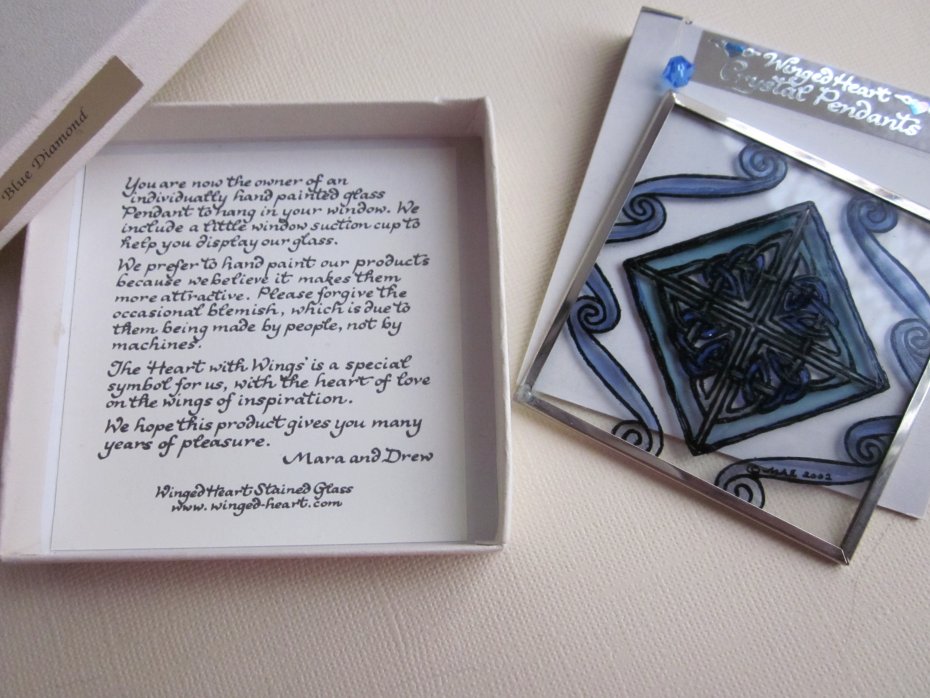 Blue Diamond
You are now the owner of an
individually hand painted glass
Pendant to hang in your window. We
include a little window suction cup to
help you display our glass.
We prefer to hand paint our products
because we believe it makes them
more attractive. Please forgive the
occasional blemish, which is due to
them being made by people, not by
machines.
The 'Heart with Wings' is a special
symbol for us, with the heart of love
on the wings of inspiration.
We hope this product gives you many
years of pleasure.
Mara and Drew
Winged Heart Stained Glass
www.winged-heart.com
Winged Heart
Crystal Pendants
2002